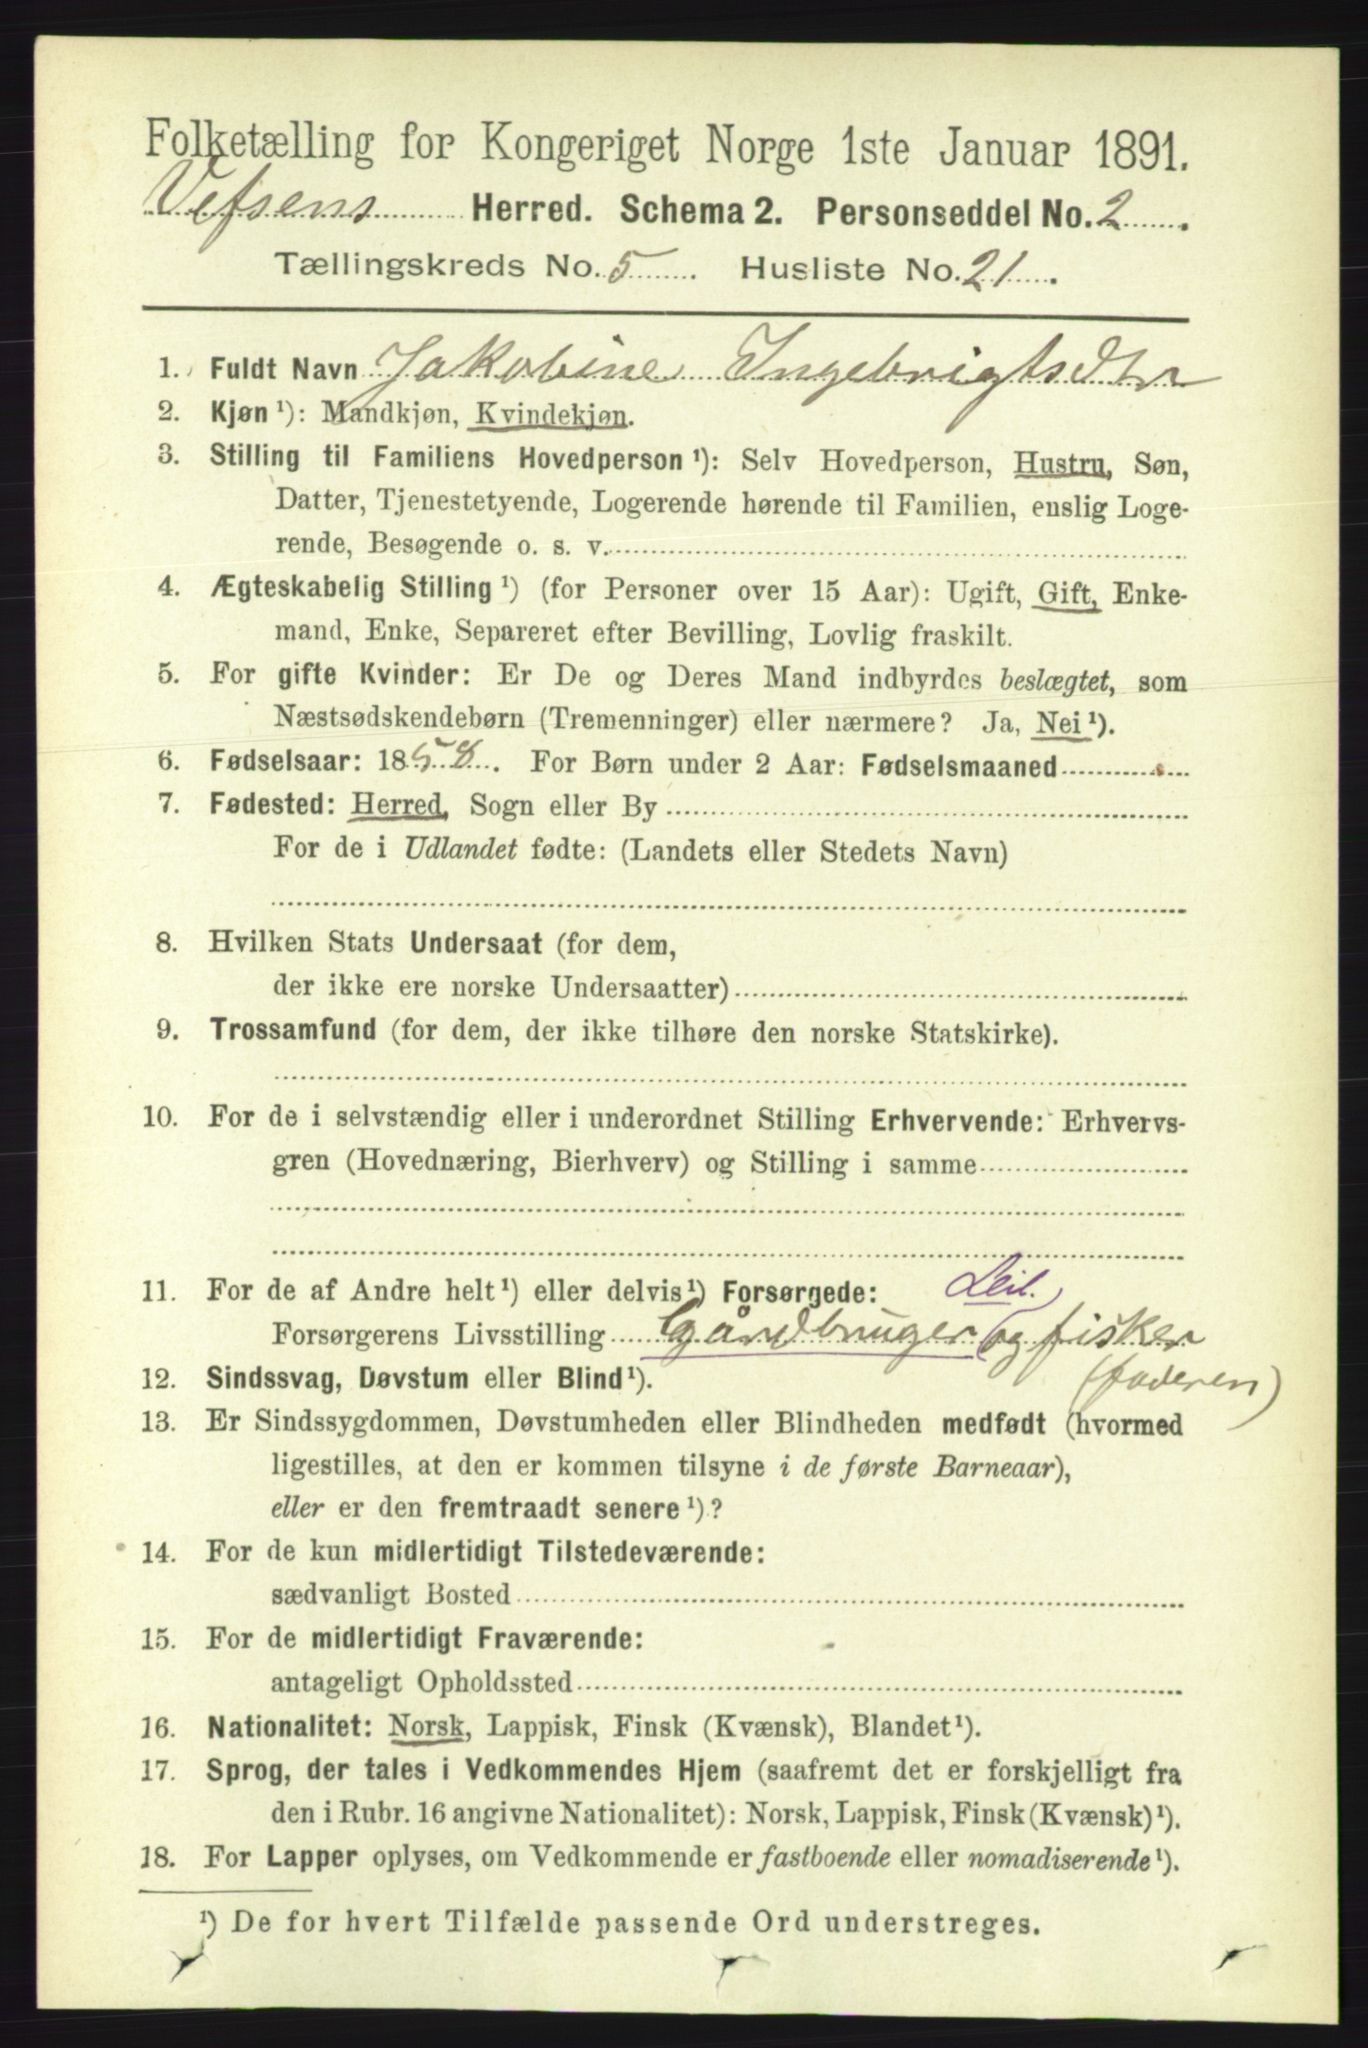 Folketælling for Kongeriget Norge 1ste Januar 1891.
Vefsens Herred. Schema 2. Personseddel No. 2
Tællingskreds No. 5 Husliste No. 21
1. Fuldt Navn Jakobine Ingebrigtsdtr
2. Kjøn ¹): Mandkjøn, Kvindekjøn.
3. Stilling til Familiens Hovedperson ¹): Selv Hovedperson, Hustru, Søn,
Datter, Tjenestetyende, Logerende hørende til Familien, enslig Loge-
rende, Besøgende o. s. v.
4. Ægteskabelig Stilling ¹) (for Personer over 15 Aar): Ugift, Gift, Enke-
mand, Enke, Separeret efter Bevilling, Lovlig fraskilt.
5. For gifte Kvinder: Er De og Deres Mand indbyrdes beslægtet, som
Næstsødskendebørn (Tremenninger) eller nærmere? Ja, Nei ¹).
6. Fødselsaar: 1858. For Børn under 2 Aar: Fødselsmaaned
7. Fødested: Herred, Sogn eller By
For de i Udlandet fødte: (Landets eller Stedets Navn)
8. Hvilken Stats Undersaat (for dem,
der ikke ere norske Undersaatter)
9. Trossamfund (for dem, der ikke tilhøre den norske Statskirke).
10. For de i selvstændig eller i underordnet Stilling Erhvervende: Erhvervs-
gren (Hovednæring, Bierhverv) og Stilling i samme
11. For de af Andre helt ¹) eller delvis ¹) Forsørgede: Leil.
Forsørgerens Livsstilling Gårdbruger og fisker
12. Sindssvag, Døvstum eller Blind ¹). (faderen)
13. Er Sindssygdommen, Døvstumheden eller Blindheden medfødt (hvormed
ligestilles, at den er kommen tilsyne i de første Barneaar),
eller er den fremtraadt senere ¹)?
14. For de kun midlertidigt Tilstedeværende:
sædvanligt Bosted
15. For de midlertidigt Fraværende:
antageligt Opholdssted
16. Nationalitet: Norsk, Lappisk, Finsk (Kvænsk), Blandet ¹).
17. Sprog, der tales i Vedkommendes Hjem (saafremt det er forskjelligt fra
den i Rubr. 16 angivne Nationalitet): Norsk, Lappisk, Finsk (Kvænsk) ¹).
18. For Lapper oplyses, om Vedkommende er fastboende eller nomadiserende ¹).
¹) De for hvert Tilfælde passende Ord understreges.